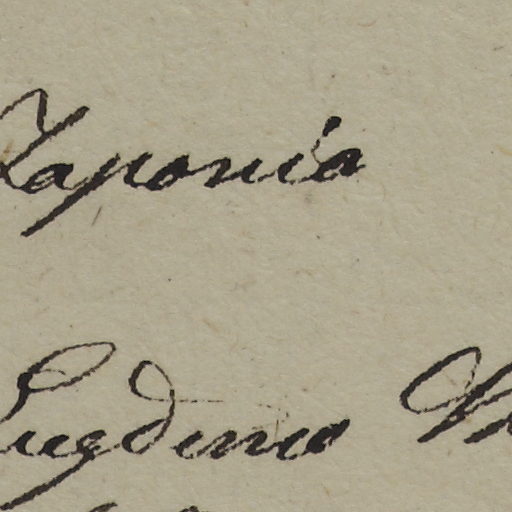 Laponia
Lugduno